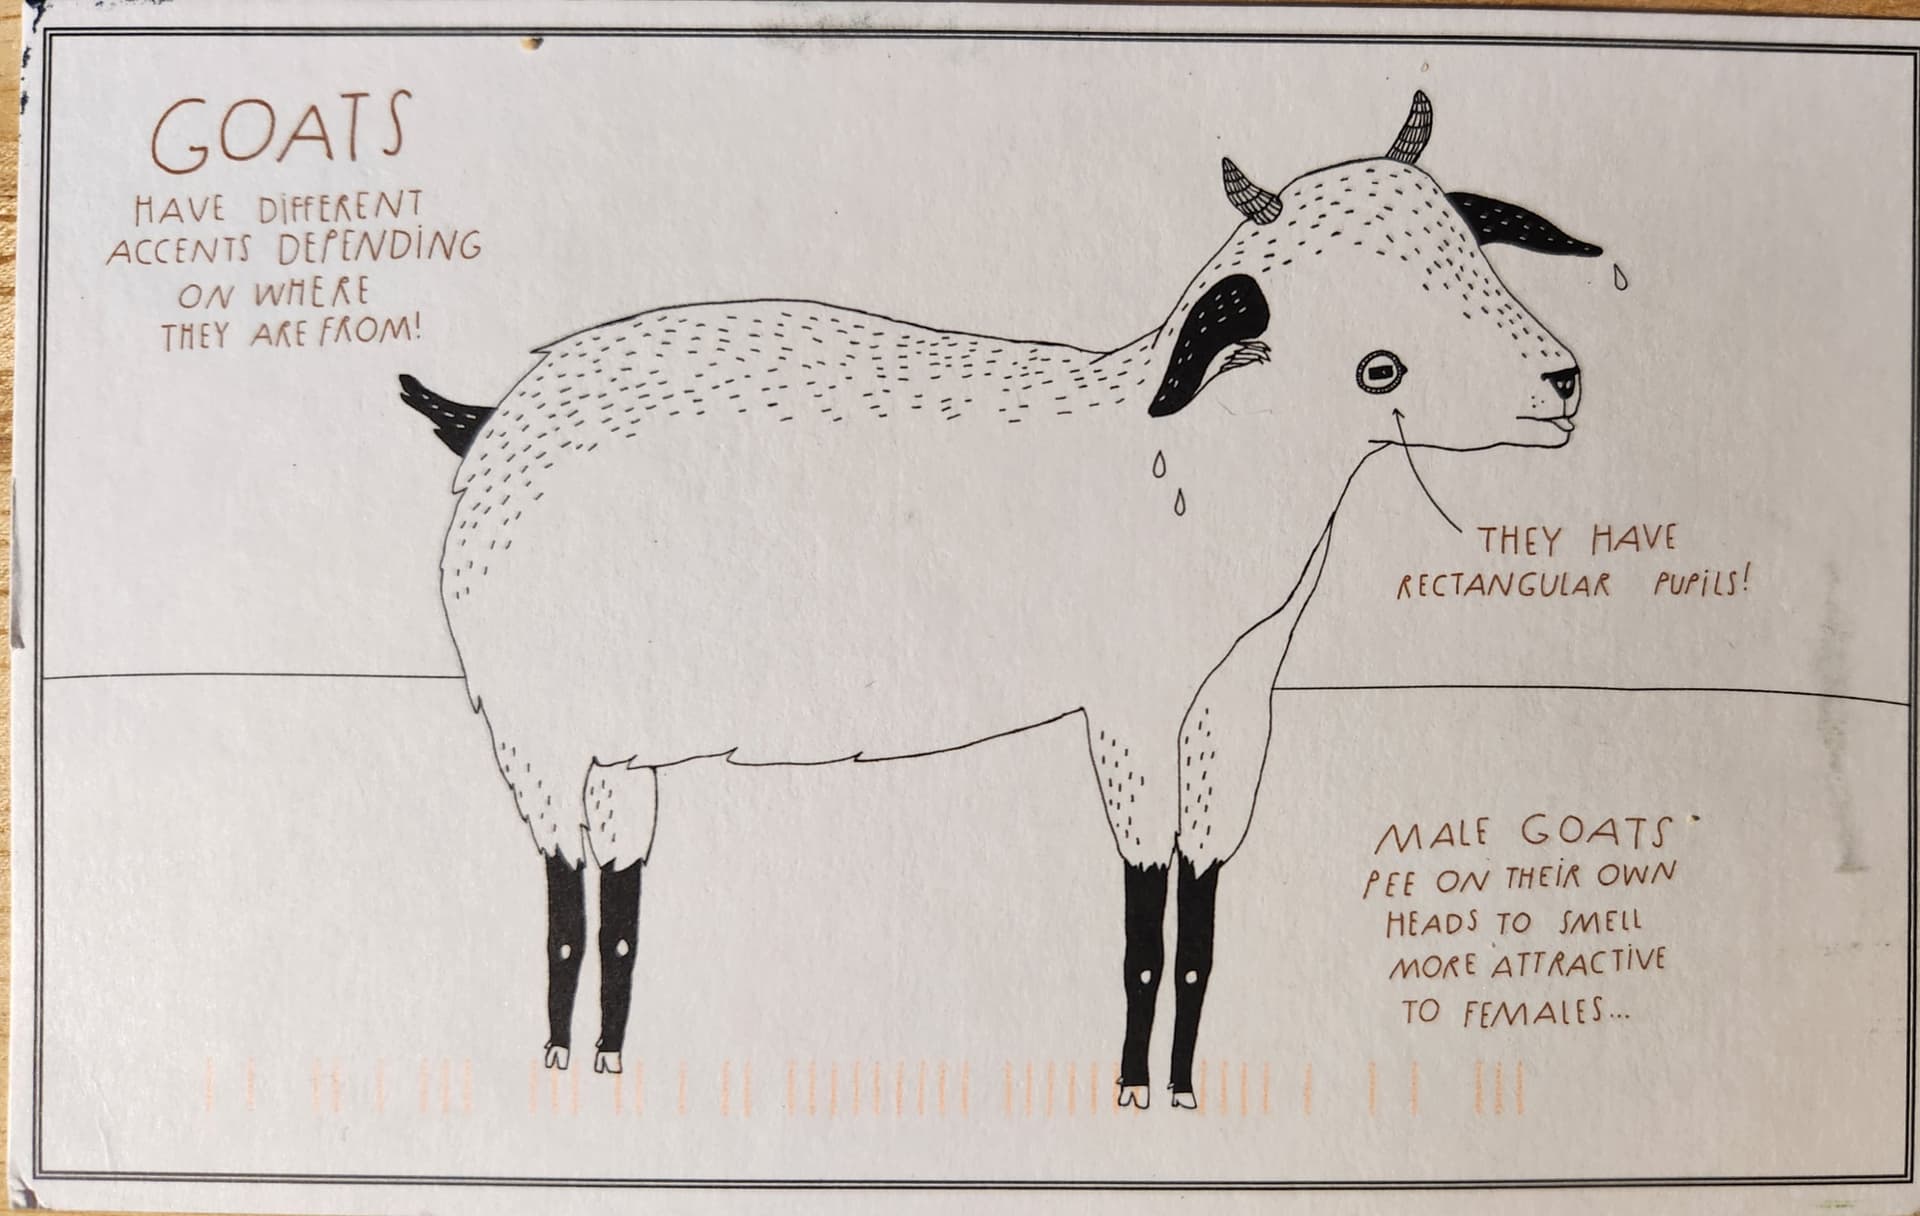 GOATS
HAVE DIFFERENT
ACCENTS DEPENDING
ON WHERE
THEY ARE FROM!
THEY HAVE
RECTANGULAR PUPILS!
MALE GOATS
PEE ON THEIR OWN
HEADS TO SMELL
MORE ATTRACTIVE
TO FEMALES...